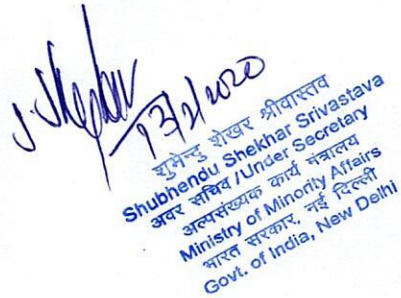 13/2/2020
शुभेन्दु शेखर श्रीवास्तव
Shubhendu Shekhar Srivastava
अवर सचिव /Under Secretary
अल्पसंख्यक कार्य मंत्रालय
Ministry of Minority Affairs
भारत सरकार, नई दिल्ली
Govt. of India, New Delhi